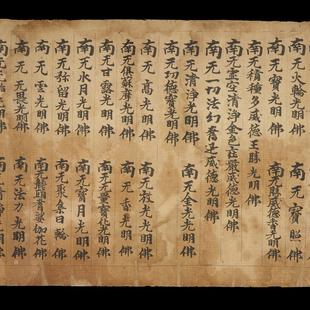 南无火輪光明佛 南无寶照佛
南无寶光明佛 南无勝威德香光明佛
南无積種多威德王勝光明佛
南无虛空清淨金色莊嚴威德光明佛
南无一切法幻奮迅威德光明佛
南无清淨光明佛 南无金光光明佛
南无功德寶光明佛
南无高光明佛 南无光明佛
南无俱蘇摩光明佛 南无香光明佛
南无甘露光明佛 南无量寶化光明佛
南无水月光明佛 南无寶月光明佛
南无弥留光明佛 南无聚集日輪佛
南无雲光明佛 南无頭耆婆伽花佛
南无无畏光明佛 南无法力光明佛